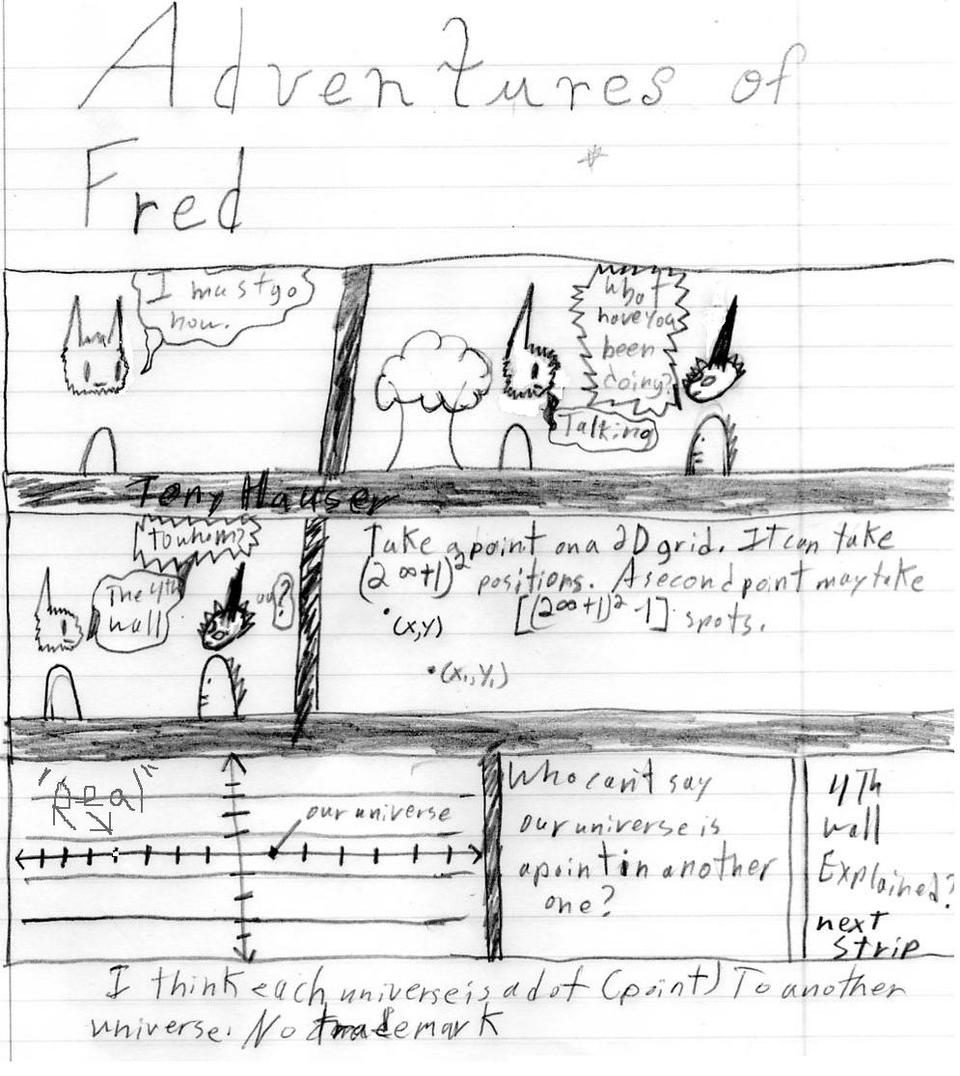 Adventures of
Fred
I must go
now.
What
have you
been
doing?
Talking
Tony Hauser
To whom?
The 4th
wall
Take a point on a 2D grid. It can take
(2∞+1)² positions. A second point may take
[(2∞+1)²-1] spots.
(x,y)
(x₁,y₁)
our universe
Who can't say
our universe is
a point in another
one?
4Th
wall
Explained?
next
strip
I think each universe is a dot (point) To another
universe. No Trademark